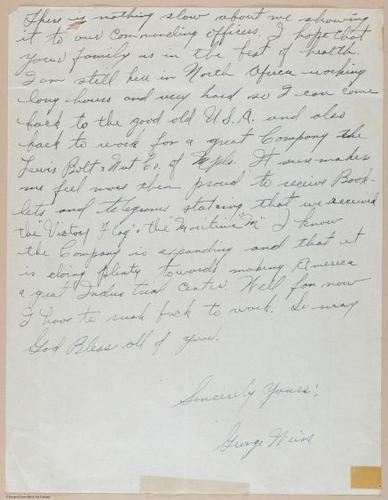 There is nothing slow about me showing
it to our Commending officers. I hope that
your family is in the best of health.
I am still here in North Africa working
long hours and very hard so I can come
back to the good old U.S.A. and also
back to work for a great Company the
Lewis Bolt & Nut Co. of Mpls. It sure makes
me feel more then proud to receive Book-
lets and telegrams stateing that we received
the "Victory Flag" & the "Maritime "M" I know
the Company is expanding and that it
is doing plenty towards making America
a great Industrial Center. Well for now
I have to rush back to work. So may
God Bless all of you.
Sincerely Yours:
George Weiss